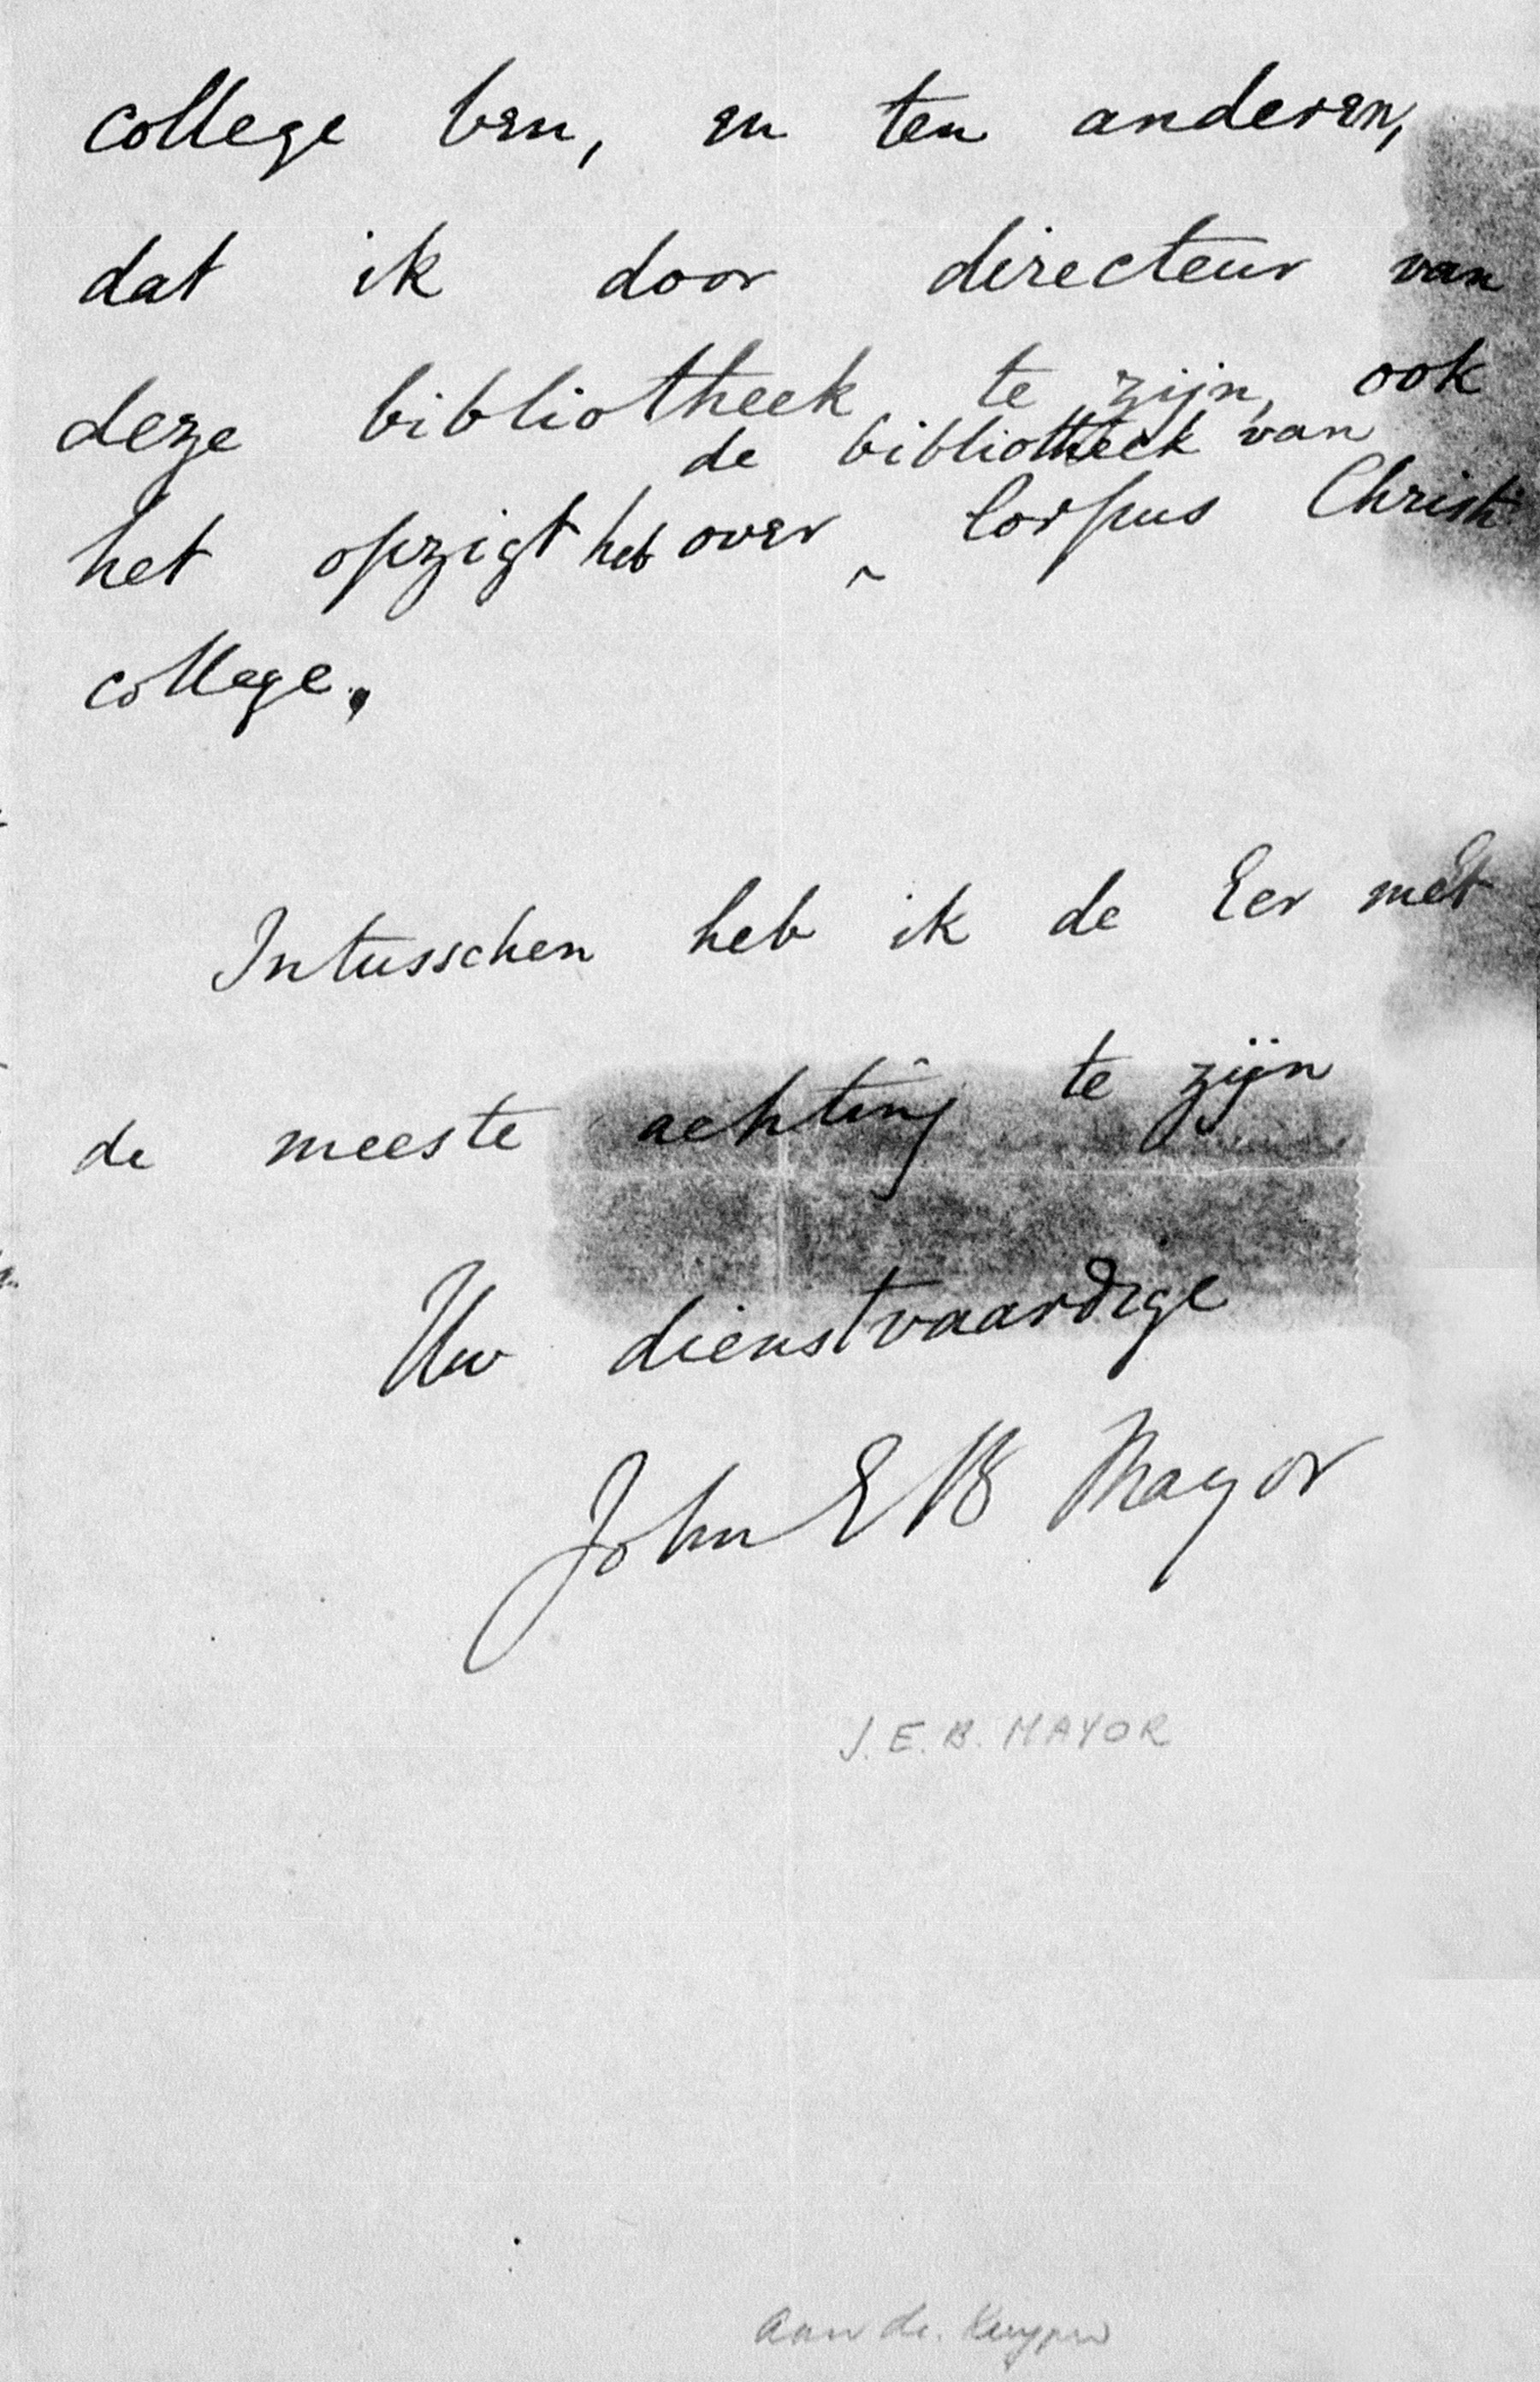 college ben, en ten anderen,
dat ik door directeur van
deze bibliotheek te zijn, ook
de bibliotheek van
het opzigt heb over ‸ Corpus Christi
college.
Intusschen heb ik de Eer met
de meeste achting te zijn
Uw dienstvaardige
John E B Mayor
J. E. B. MAYOR
Aan dr. Kuyper